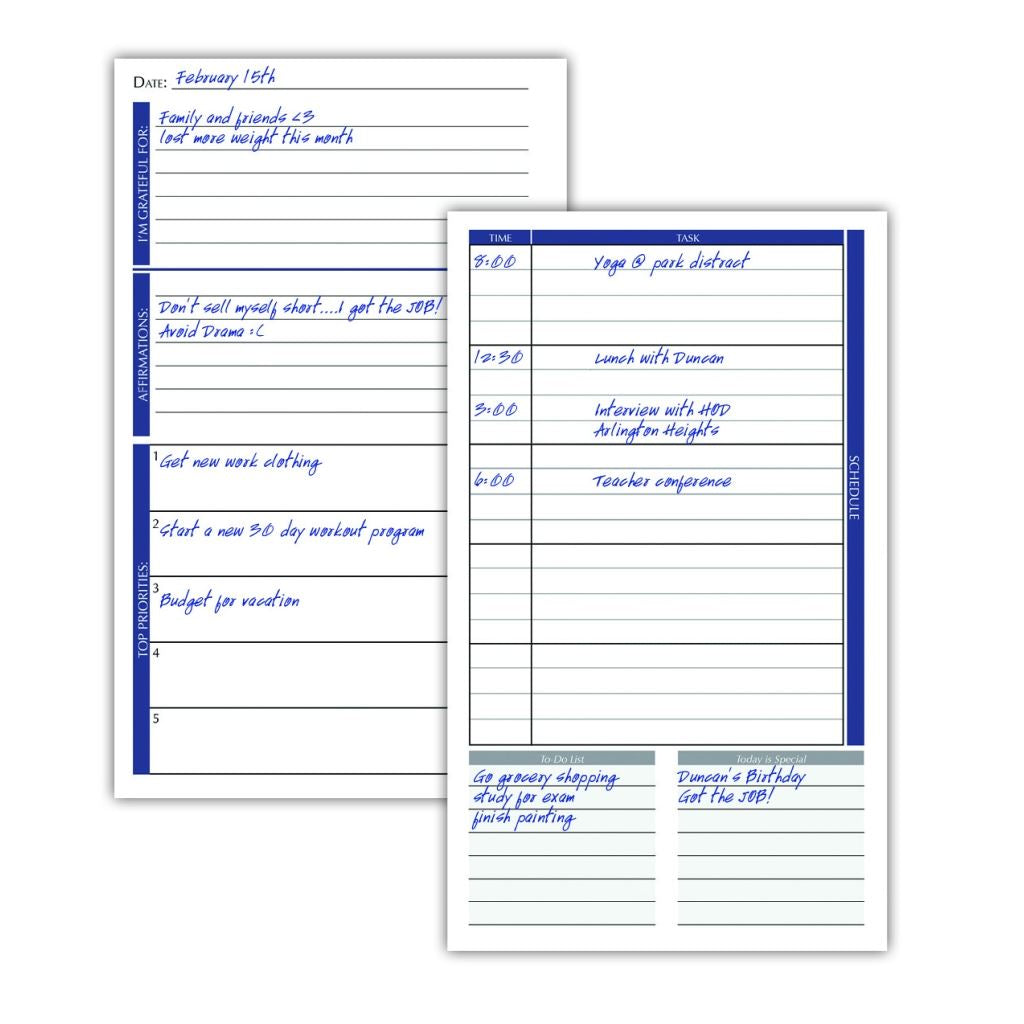 DATE: February 15th
I'M GRATEFUL FOR:
Family and friends <3
lost more weight this month
AFFIRMATIONS:
Don't sell myself short....I got the JOB!
Avoid Drama :(
TOP PRIORITIES:
1 Get new work clothing
2 Start a new 30 day workout program
3 Budget for vacation
4
5
TIME TASK
8:00 Yoga @ park distract
12:30 Lunch with Duncan
3:00 Interview with HOD
Arlington Heights
6:00 Teacher conference
SCHEDULE
To-Do List
Go grocery shopping
study for exam
finish painting
Today is Special
Duncan's Birthday
Got the JOB!